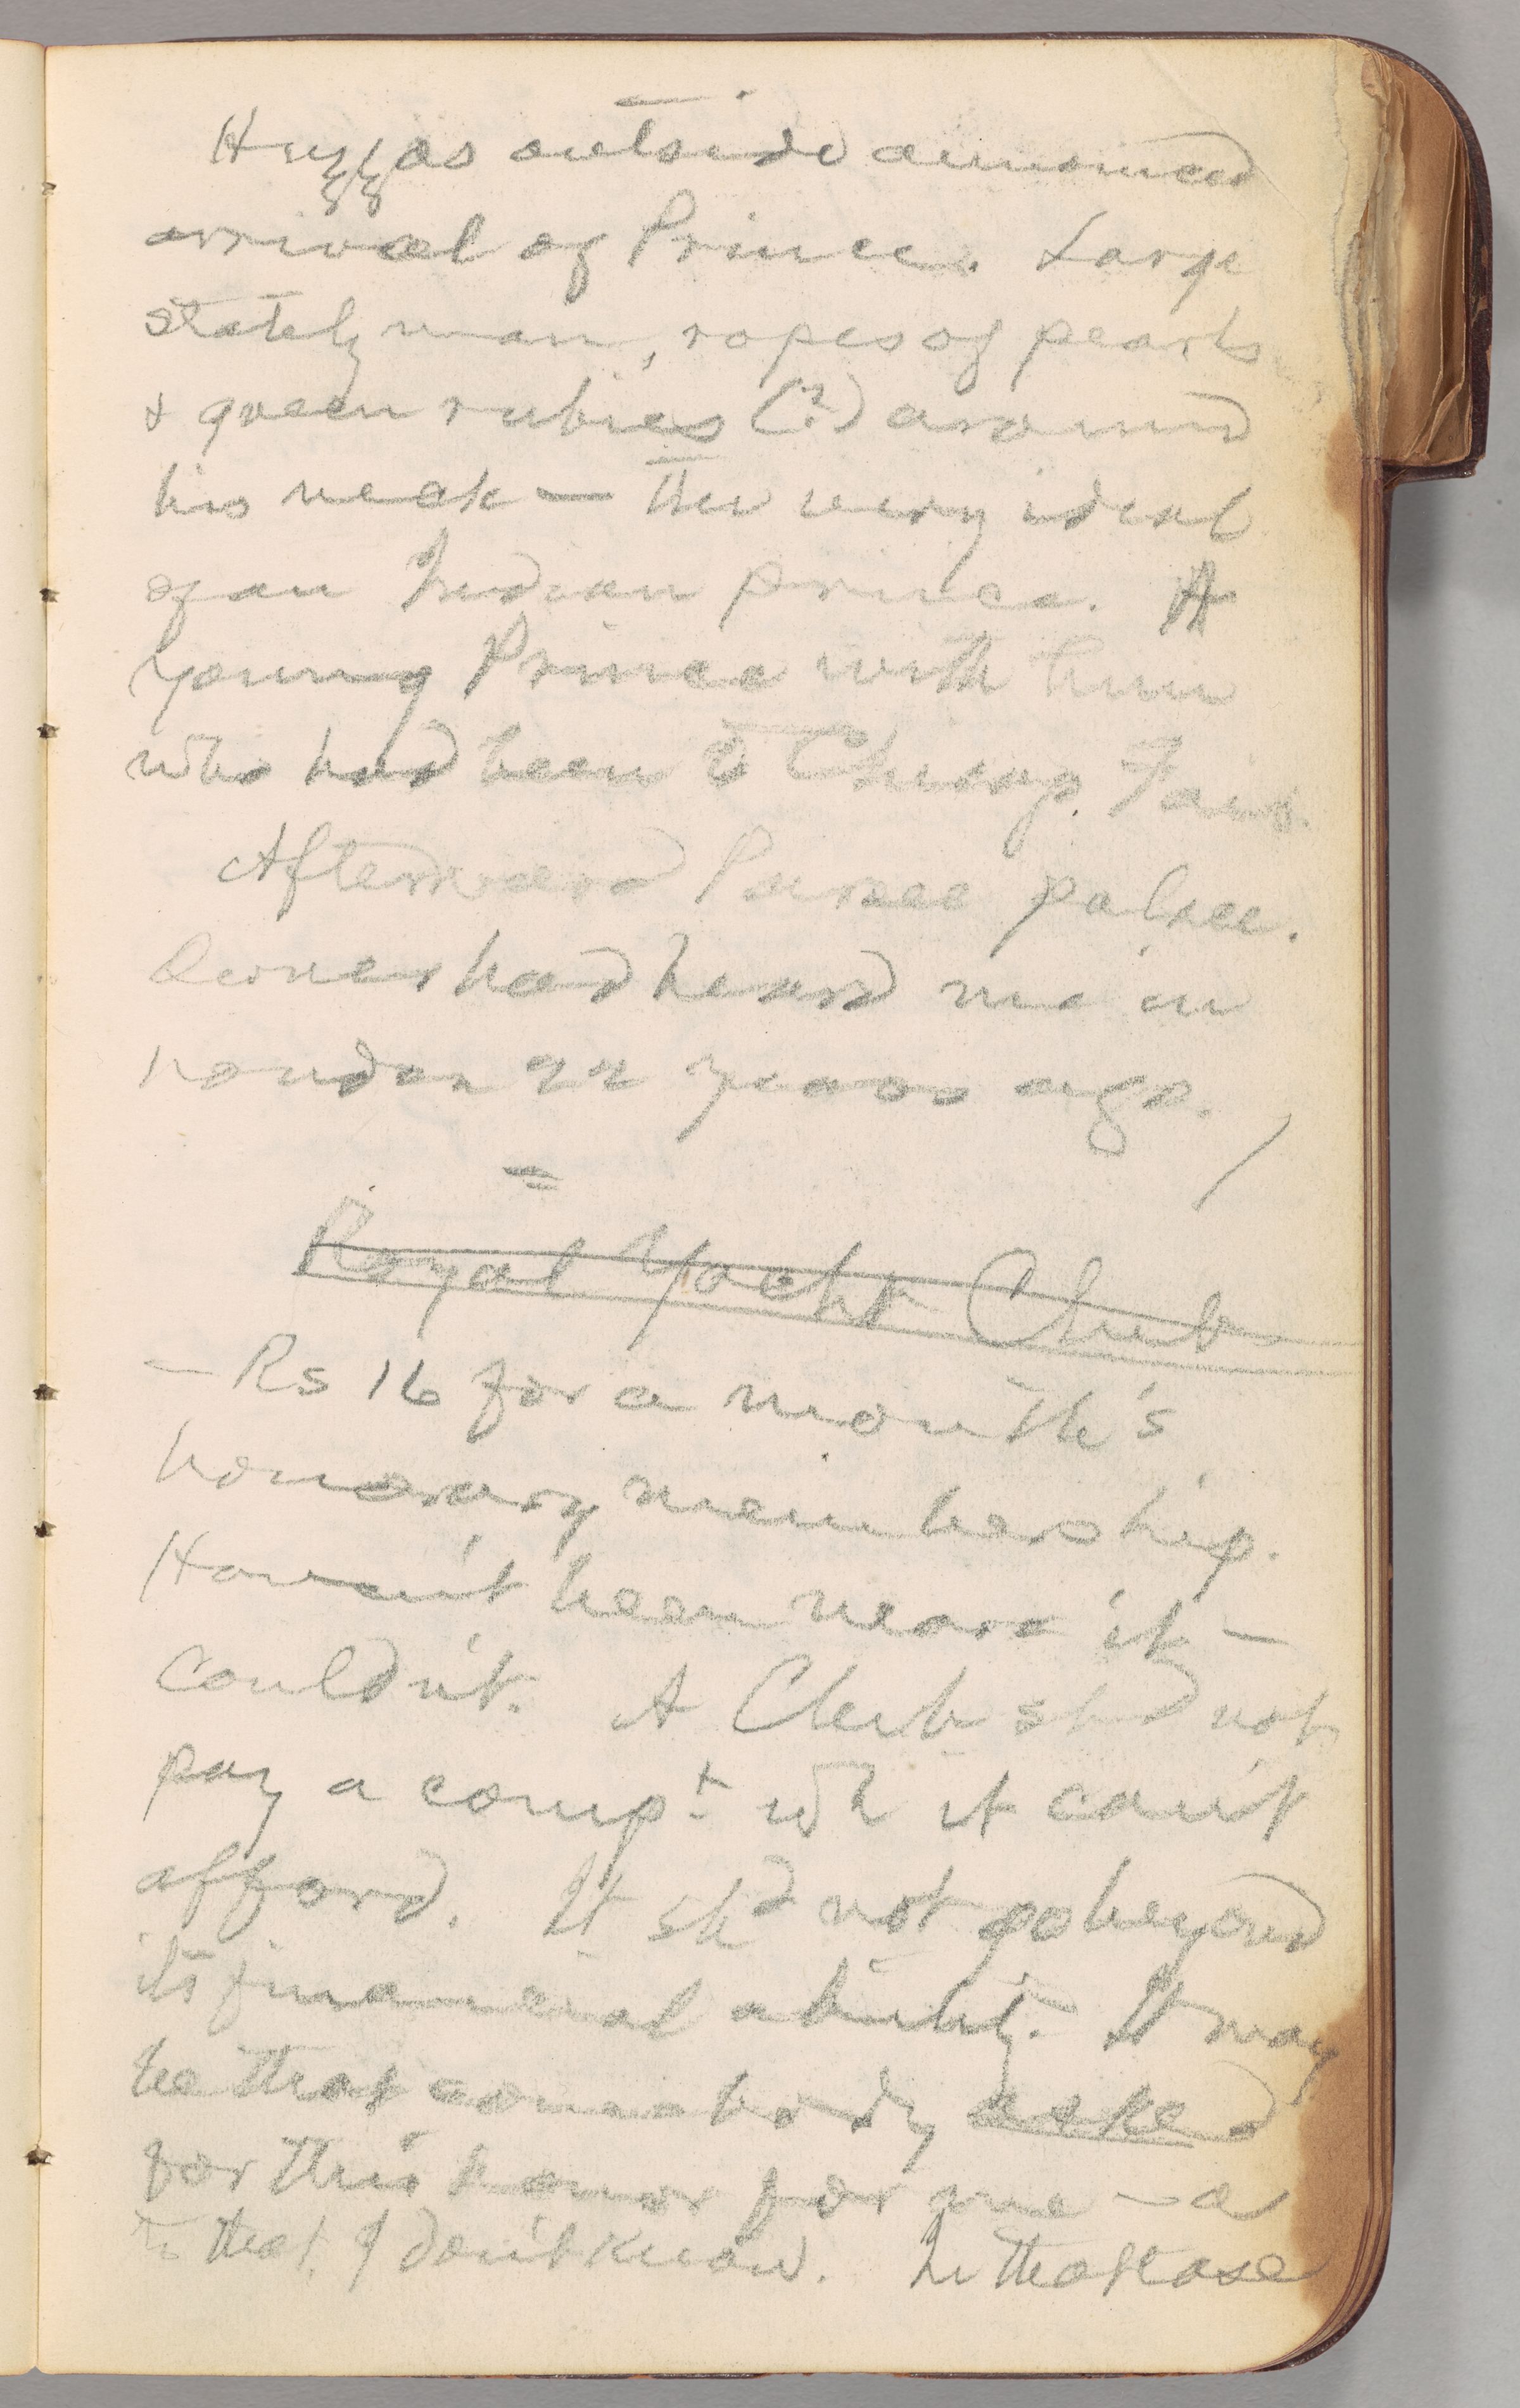 Huzzas outside announced
arrival of Prince. Large
stately man, ropes of pearls
& green rubies (?) around
his neck — the very ideal
of an Indian prince. A
young Prince with him
who had been to Chicago Fair.
Afterward Parsee palace.
Owner had heard me in
London 22 years ago.
Royal Yacht Club
— Rs 16 for a month's
honorary membership.
Haven't been near it —
couldn't. A Club shd not
pay a compt wh it can't
afford. It shd not go beyond
its financial ability. It may
be that somebody asked
for this honor for me — as
to that, I don't know. In that case